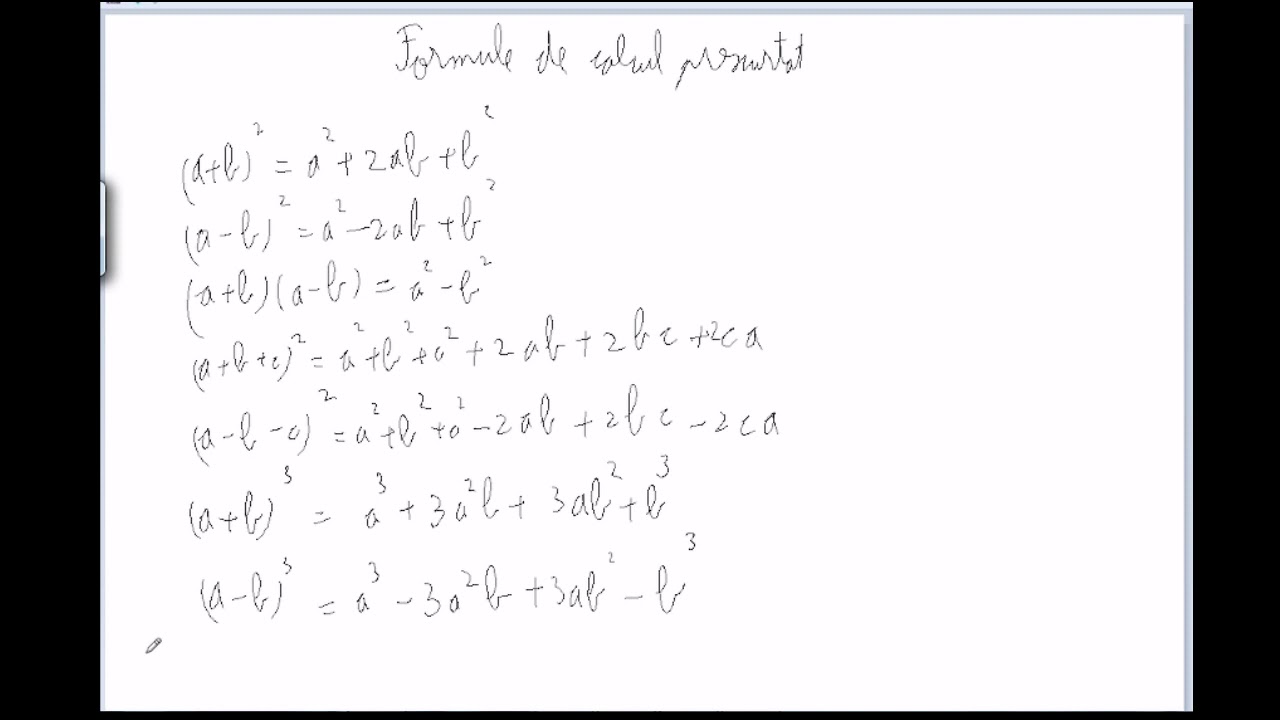 Formule de calcul prescurtat
(a+b)² = a² + 2ab + b²
(a-b)² = a² - 2ab + b²
(a+b)(a-b) = a² - b²
(a+b+c)² = a² + b² + c² + 2ab + 2bc + 2ca
(a-b-c)² = a² + b² + c² - 2ab + 2bc - 2ca
(a+b)³ = a³ + 3a²b + 3ab² + b³
(a-b)³ = a³ - 3a²b + 3ab² - b³